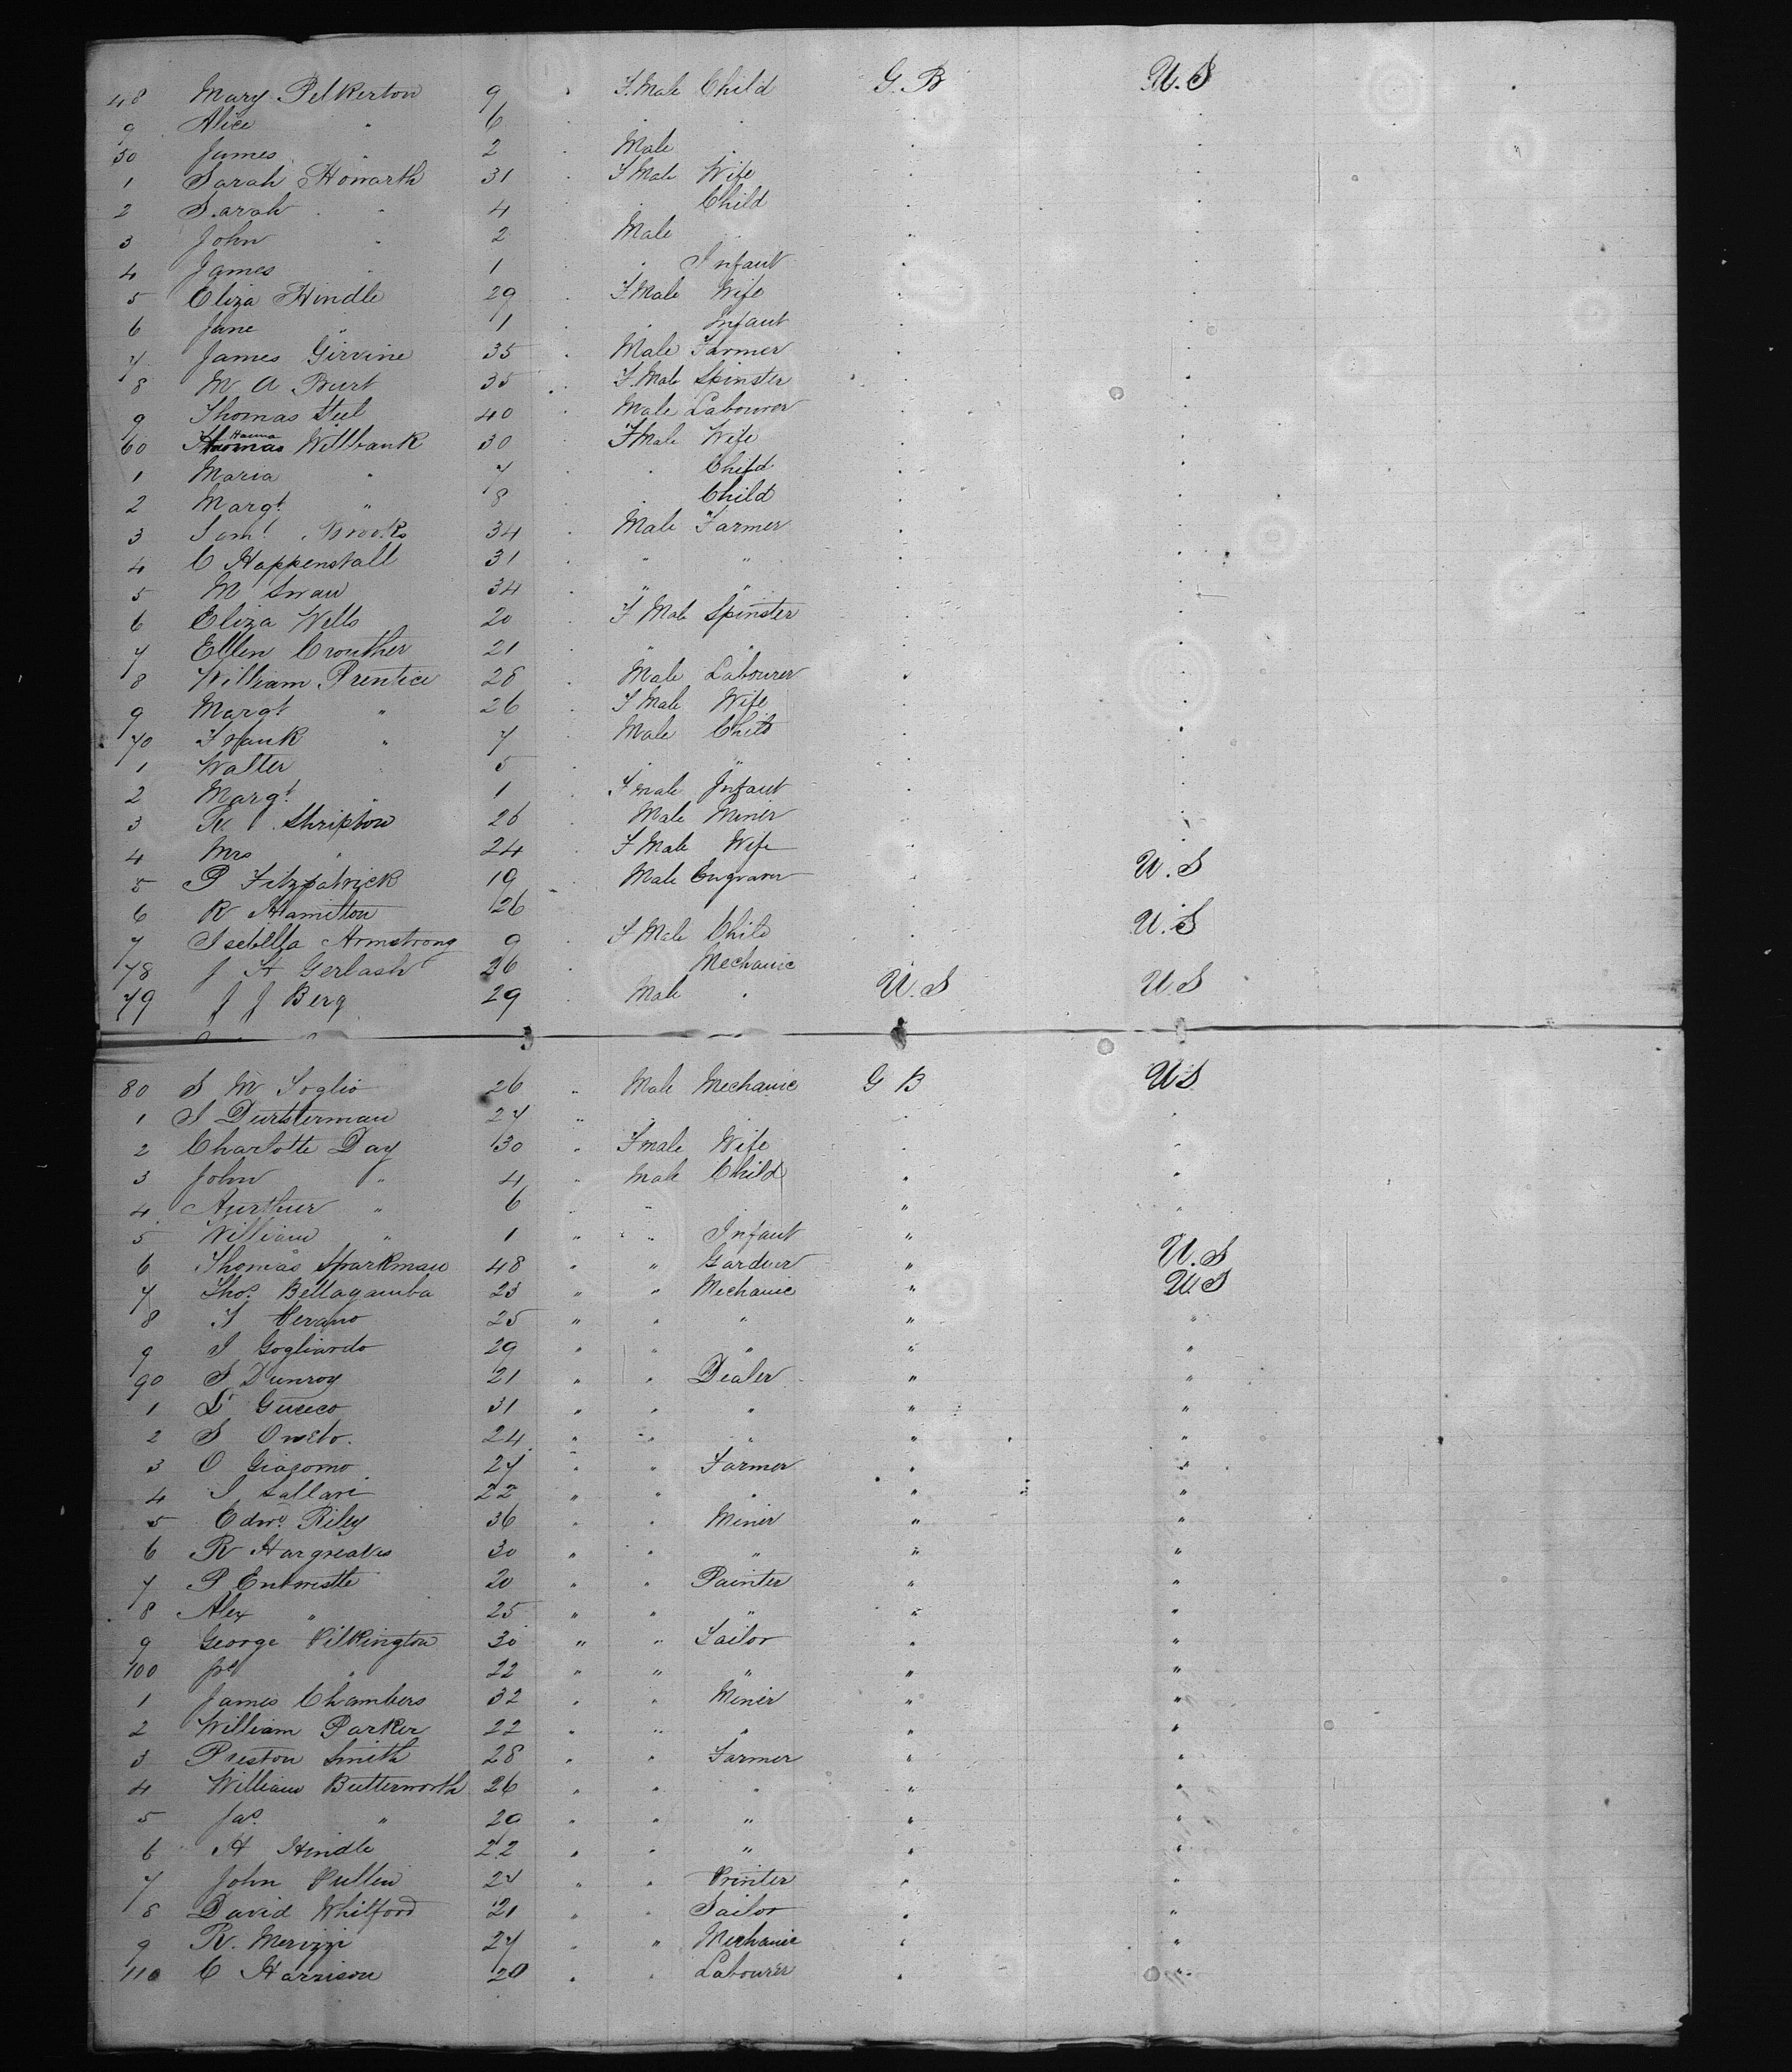 48 Mary Pilkerton 9 " F.Male Child G.B U.S
9 Alice " 6 " " " " "
50 James " 2 " Male " " "
1 Sarah Howarth 31 " F Male Wife " "
2 Sarah " 4 " " Child " "
3 John " 2 " Male " " "
4 James " 1 " " Infant " "
5 Eliza Hindle 29 " F.Male Wife " "
6 Jane " 1 " " Infant " "
7 James Girvine 35 " Male Farmer " "
8 M A Burt 35 " F.Male Spinster " "
9 Thomas Steel 40 " Male Labourer " "
60 Hanna Willbank 30 " F Male Wife " "
1 Maria " 7 " " Child " "
2 Margt " 8 " " Child " "
3 Saml Brooks 34 " Male Farmer " "
4 C Happenstall 31 " " " " "
5 M Swan 34 " " " " "
6 Eliza Wells 20 " F Male Spinster " "
7 Ellen Crouther 21 " " " " "
8 William Prentice 28 " Male Labourer " "
9 Margt " 26 " F Male Wife " "
70 Frank " 7 " Male Child " "
1 Walter " 5 " " " " "
2 Margt " 1 " F male Infant " "
3 Shripton 26 " Male Miner " "
4 Mrs " 24 " F Male Wife " "
5 P Fitzpatrick 19 " Male Engraver " U.S
6 R Hamilton 26 " "
7 Isebella Armstrong 9 " F Male Child " U.S
78 J H Gerlash 26 " Mechanic
79 J J Berg 29 " Male " U.S U.S
80 S M Soglio 26 " Male Mechanic G B US
1 Durtsterman 27 " " " " "
2 Charlotte Day 30 " F male Wife " "
3 John " 4 " Male Child " "
4 Aurthur " 6 " " " " "
5 William " 1 " " Infant " "
6 Thomas Sparkman 48 " " Gardner " U.S
7 Thos Bellagamba 23 " " Mechanic " U.S
8 Verano 25 " " " " "
9 Gogliardo 29 " " " " "
90 S Dunroy 21 " " Dealer " "
1 Gueco 31 " " " " "
2 S Oneto. 24 " " " " "
3 O Giacomo 27 " " Farmer " "
4 Sallari 22 " " " " "
5 Edwd Riley 36 " " Miner " "
6 R Hargreaves 30 " " " " "
7 P Entwistle 20 " " Painter " "
8 Alex " 25 " " " " "
9 George Pilkington 30 " " Sailor " "
100 " 22 " " " " "
1 James Chambers 32 " " Miner " "
2 William Parker 22 " " " " "
3 Preston Smith 28 " " Farmer " "
4 William Butterworth 26 " " " " "
5 Jas. " 20 " " " " "
6 H Hindle 22 " " " " "
7 John Pullin 27 " " Printer " "
8 David Whilford 21 " " Sailor " "
9 R. Merizzi 27 " " Mechanic " "
110 C Harrison 20 " " Labourer " "